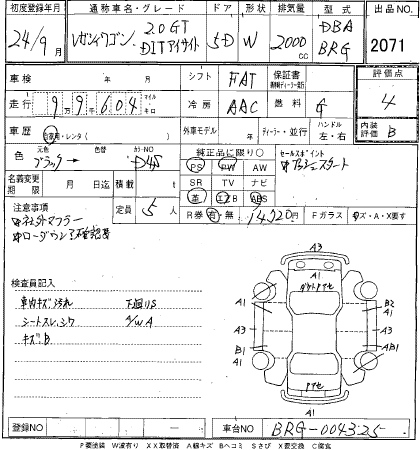 初度登録年月 通称車名・グレード ドア 形状 排気量 型式 出品NO
24/9月 レガシィワゴン 2.0GT DITアイサイト 5D W 2000cc DBA BRG 2071
車検 年 月 シフト FAT 保証書 評価点
走行 99,604 マイル・キロ 冷房 AAC 燃料 G 4
車歴 自家用・レンタ 外車モデル ディーラー・並行 ハンドル 左・右 内装評価 B
色 元色 ブラック 色替 カラーNO D4S 純正品に限り○ セールスポイント
名義変更期限 月 日迄 積載 t PS PW AW プッシュスタート
SR TV ナビ
注意事項 定員 5人 革 エアB ABS
社外マフラー R券 有・無 14920円 Fガラス キズ・A・X要す
ローダウン
検査員記入
車内キズ汚れ 下廻りS
シートスレ、シワ A/W A
キズB
A3
A1
ダクトアセ
A1 B2
A1
A3 A3
B1 AB1
A1 A1
アセ
A1
登録NO 車台NO BRG-004325
P要塗装 W波有り XX取替済 A線キズ Bヘコミ Sさび X要交換 C腐食